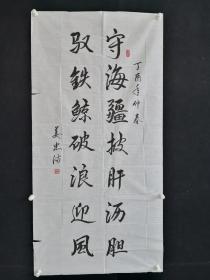 丁酉年仲春
守海疆披肝沥胆
驭铁鲸破浪迎风